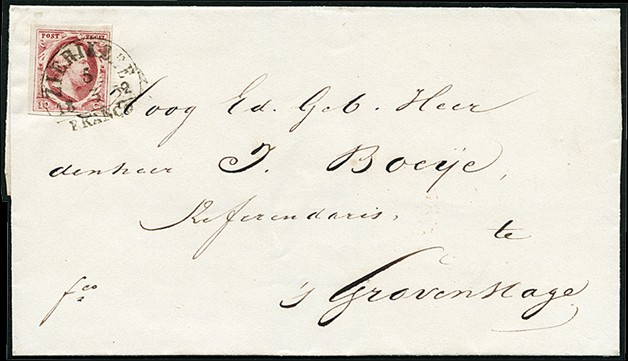 POST ZEGEL
ZIERIKZEE
5
FRANCO
Hoog Ed. Geb. Heer
denheer J. Boeije,
Referendaris,
te
fco
's Gravenhage